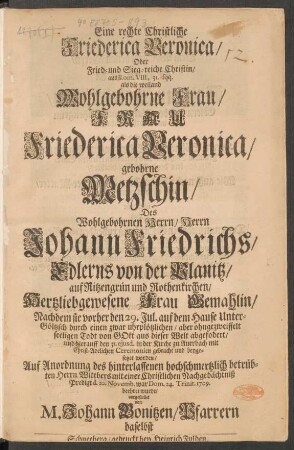 Eine rechte Christliche
Friederica Veronica/
Oder
Fried- und Sieg-reiche Christin/
aus Rom. VIII, 31. sqq.
als die weiland
Wohlgebohrne Frau/
FRAU
Friederica Veronica/
gebohrne
Metzschin/
Des
Wohlgebohrnen Herrn/ Herrn
Johann Friedrichs/
Edlerns von der Planitz/
auf Aützengrün und Rothenkirchen/
Hertzliebgewesene Frau Gemahlin/
Nachdem sie vorher den 29. Jul. auf dem Hause Unter-
Göltzsch durch einen zwar uhrplötzlichen/ aber ohngezweiffelt
seeligen Tod von GOtt aus dieser Welt abgefodert/
und hier auf den 31. ejusd. in der Kirche zu Auerbach mit
Christ-Adelichen Ceremonien gebracht und beyge-
setzet worden/
Auf Anordnung des hinterlassenen hochschmertzlich betrüb-
ten Herrn Wittbers mit einer Christlichen Nachgedächtniß
Predigt d. 10. Novemb. war Dom. 24. Trinit. 1709.
beehret wurde/
vorgestellet
von
M. Johann Bonitzen/ Pfarrern
daselbst
Schneeberg/ gedruckt bey Heinrich Fulden.